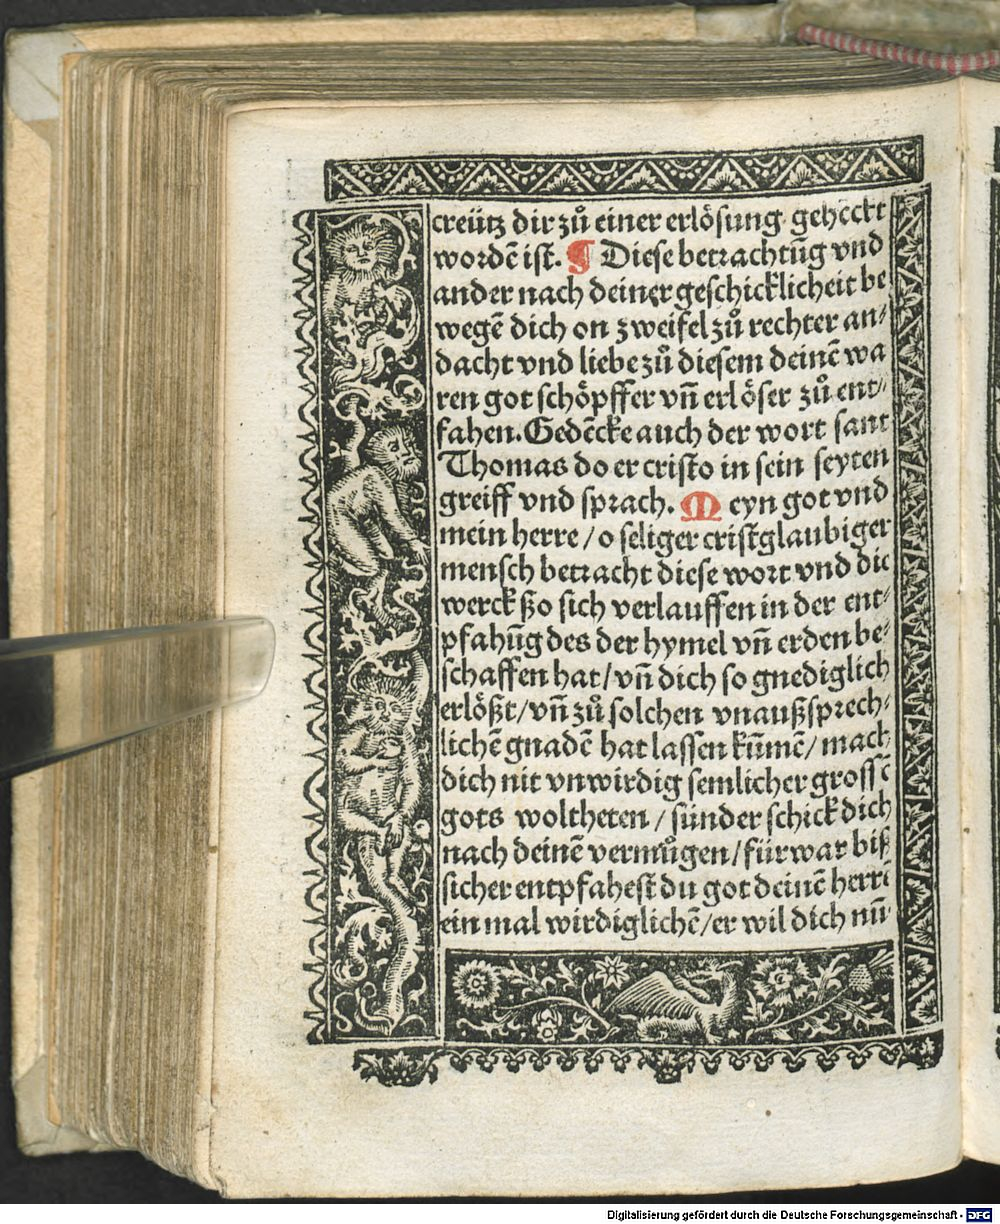 creütz dir zů einer erlösung geheckt
wordē ist. ¶ Diese betrachtūg vnd
ander nach deiner geschicklicheit be
wegē dich on zweifel zů rechter an⸗
dacht vnd liebe zů diesem deinē wa
ren got schöpffer vn̄ erlöser zů ent⸗
fahen. Gedēcke auch der wort sant
Thomas do er cristo in sein seyten
greiff vnd sprach. Meyn got vnd
mein herre / o seliger cristglaubiger
mensch betracht diese wort vnd die
werck ßo sich verlauffen in der ent⸗
pfahūg des der hymel vn̄ erden be⸗
schaffen hat / vn̄ dich so gnediglich
erlößt / vn̄ zů solchen vnaußsprech⸗
lichē gnadē hat lassen kūmē / mach
dich nit vnwirdig semlicher grossē
gots woltheten / sünder schick dich
nach deinē vermůgen / fürwar biß
sicher entpfahest du got deinē herrē
ein mal wirdiglichē / er wil dich nū
Digitalisierung gefördert durch die Deutsche Forschungsgemeinschaft - DFG